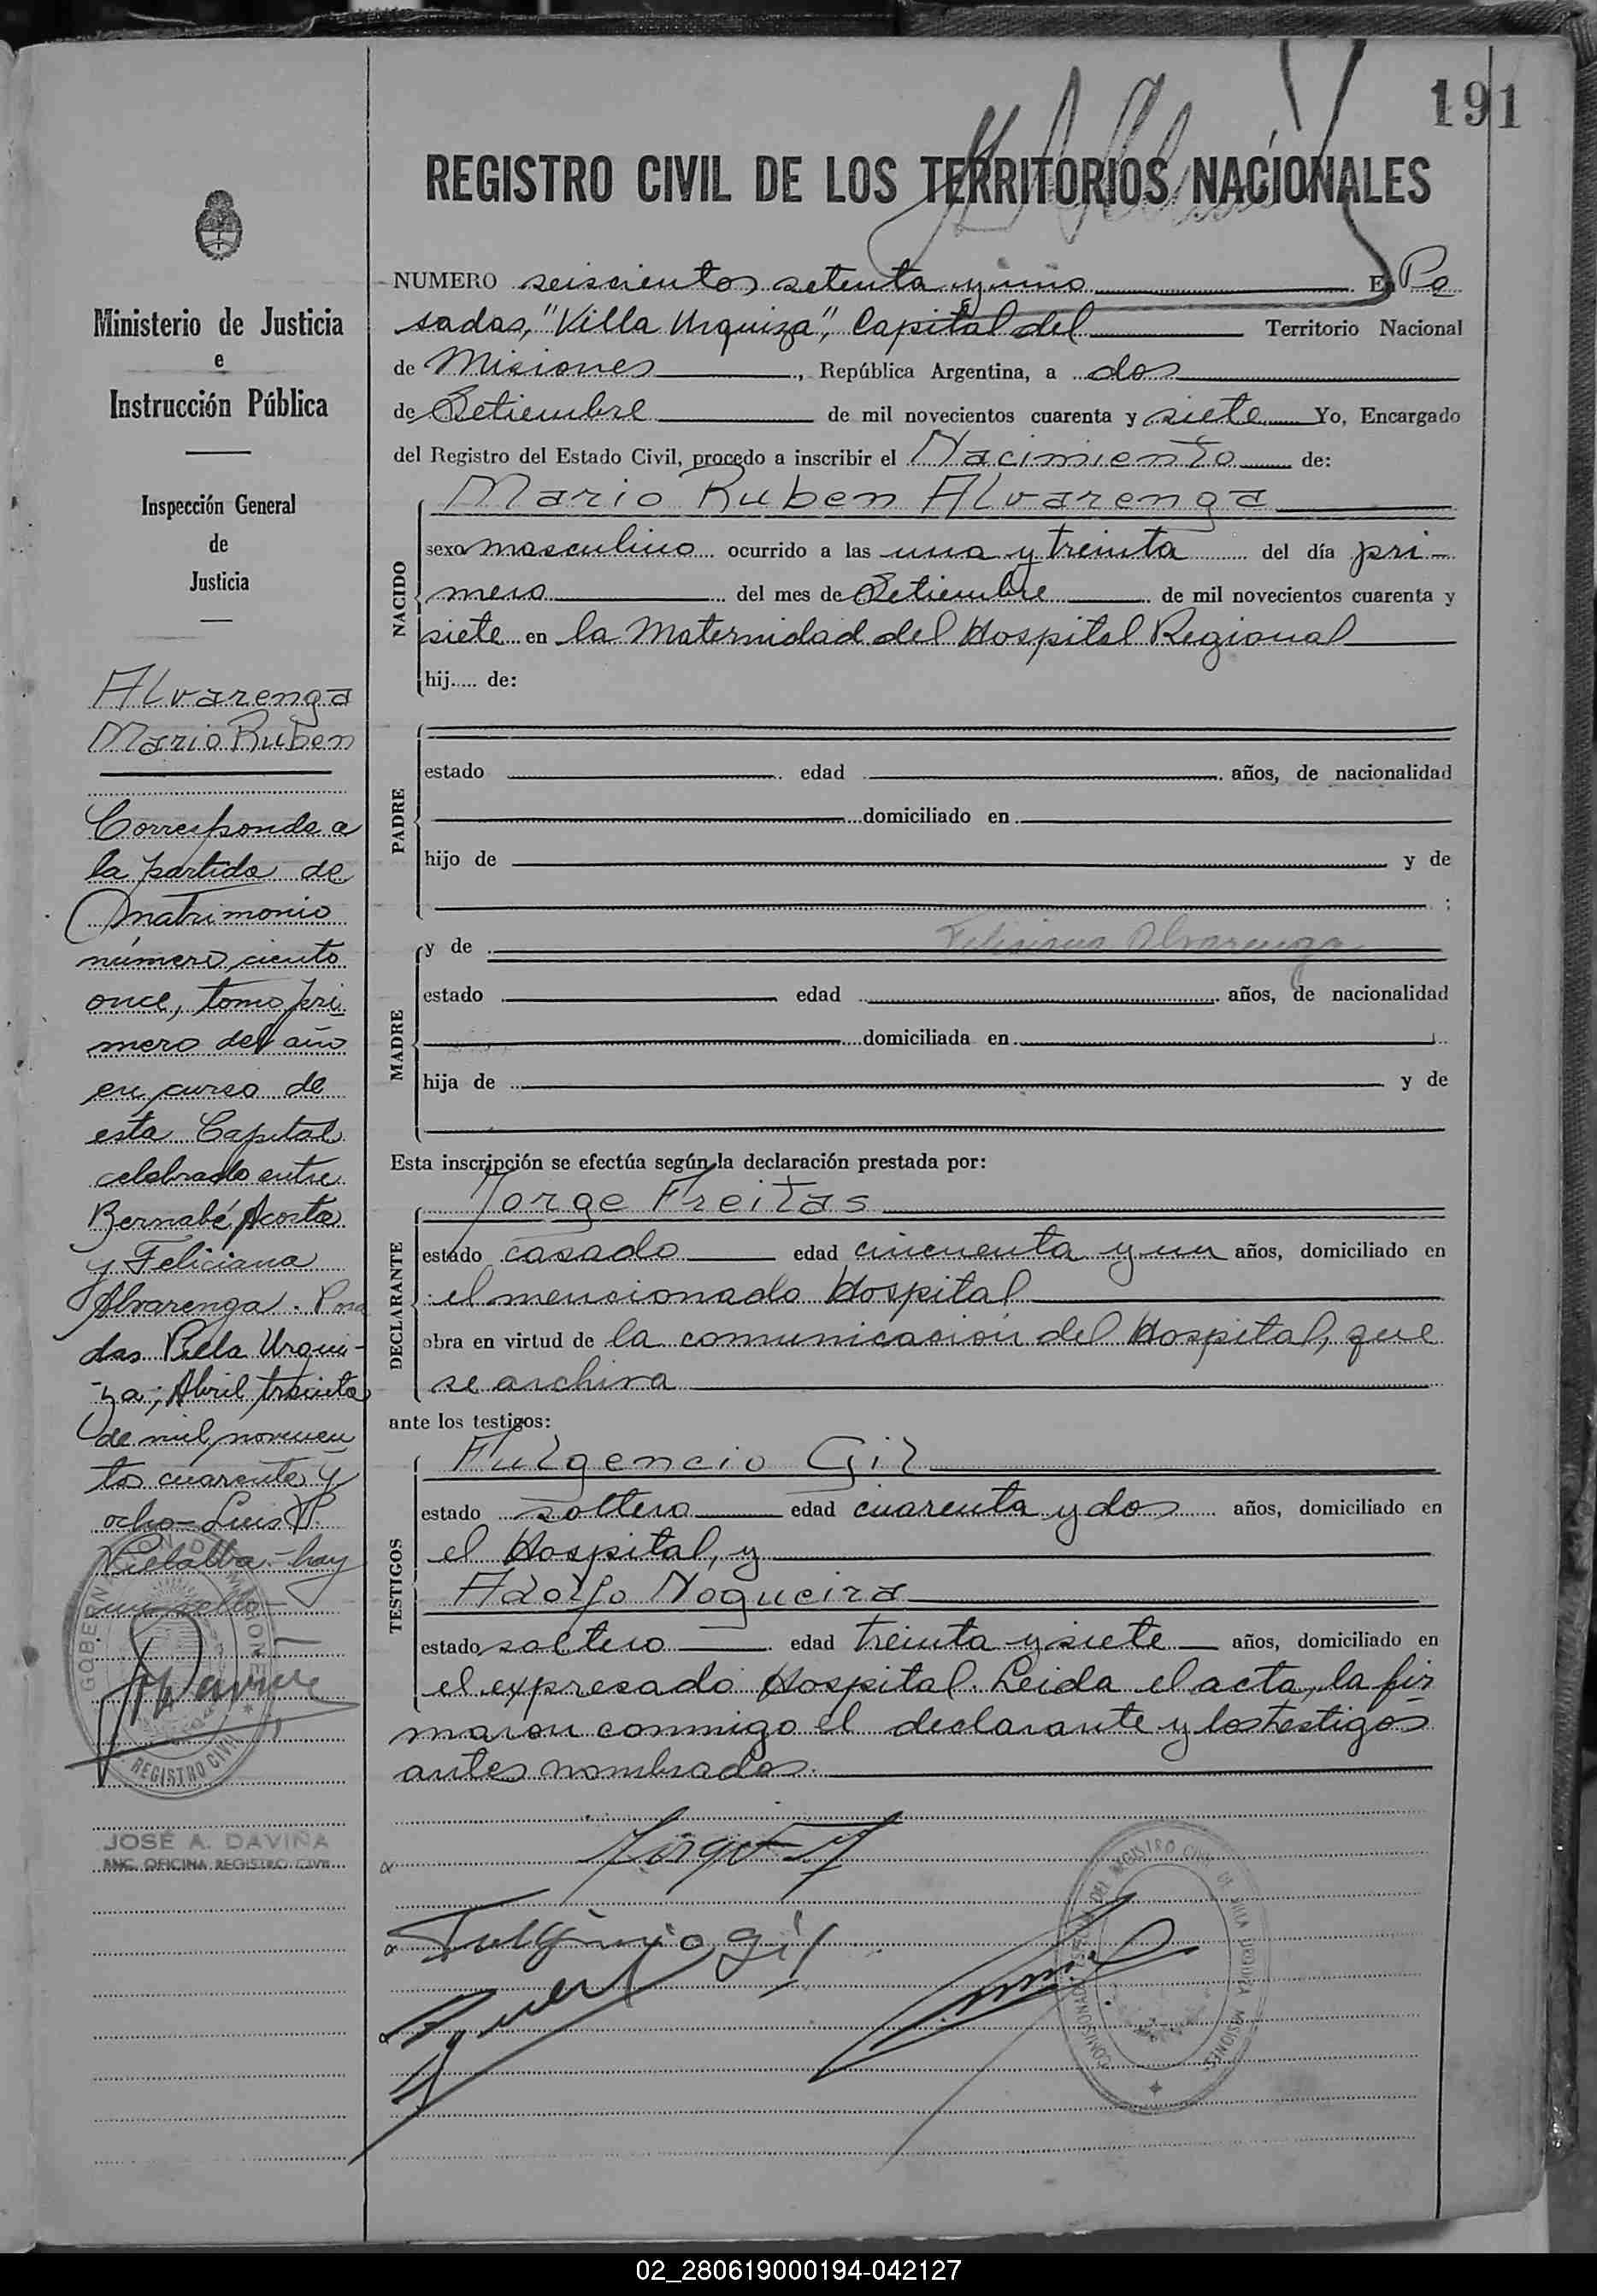 191
REGISTRO CIVIL DE LOS TERRITORIOS NACIONALES
NUMERO seiscientos setenta y uno En Po
sadas, "Villa Urquiza", Capital del Territorio Nacional
de Misiones, República Argentina, a dos
de Setiembre de mil novecientos cuarenta y siete Yo, Encargado
del Registro del Estado Civil, procedo a inscribir el Nacimiento de:
NACIDO
Mario Ruben Alvarenga
sexo masculino ocurrido a las una y treinta del día pri-
mero del mes de Setiembre de mil novecientos cuarenta y
siete en la Maternidad del Hospital Regional
hij..... de:
PADRE
estado edad años, de nacionalidad
domiciliado en
hijo de y de
;
MADRE
y de Feliciana Alvarenga
estado edad años, de nacionalidad
domiciliada en
hija de y de
Esta inscripción se efectúa según la declaración prestada por:
DECLARANTE
Jorge Freitas
estado casado edad cincuenta y un años, domiciliado en
el mencionado Hospital
obra en virtud de la comunicación del Hospital, que
se archiva
ante los testigos:
TESTIGOS
Fulgencio Gil
estado soltero edad cuarenta y dos años, domiciliado en
el Hospital, y
Adolfo Nogueira
estado soltero edad treinta y siete años, domiciliado en
el expresado Hospital. Leida el acta, la fir
maron conmigo el declarante y los testigos
antes nombrados.
Fulgencio Gil
COMISIONADO ESPECIAL DEL REGISTRO CIVIL DE VILLA URQUIZA MISIONES
Ministerio de Justicia
e
Instrucción Pública
Inspección General
de
Justicia
Alvarenga
Mario Ruben
Corresponde a
la partida de
Matrimonio
número ciento
once, tomo pri
mero del año
en curso de
esta Capital
celebrado entre
Bernabé Acosta
y Feliciana
Alvarenga. Posa
das Villa Urqui-
za; Abril treinta
de mil novecien
tos cuarenta y
ocho- Luis P.
Villalba.- hay
un sello-
GOBERNACION DE MISIONES
REGISTRO CIVIL
JOSÉ A. DAVIÑA
ENC. OFICINA REGISTRO CIVIL
02_280619000194-042127